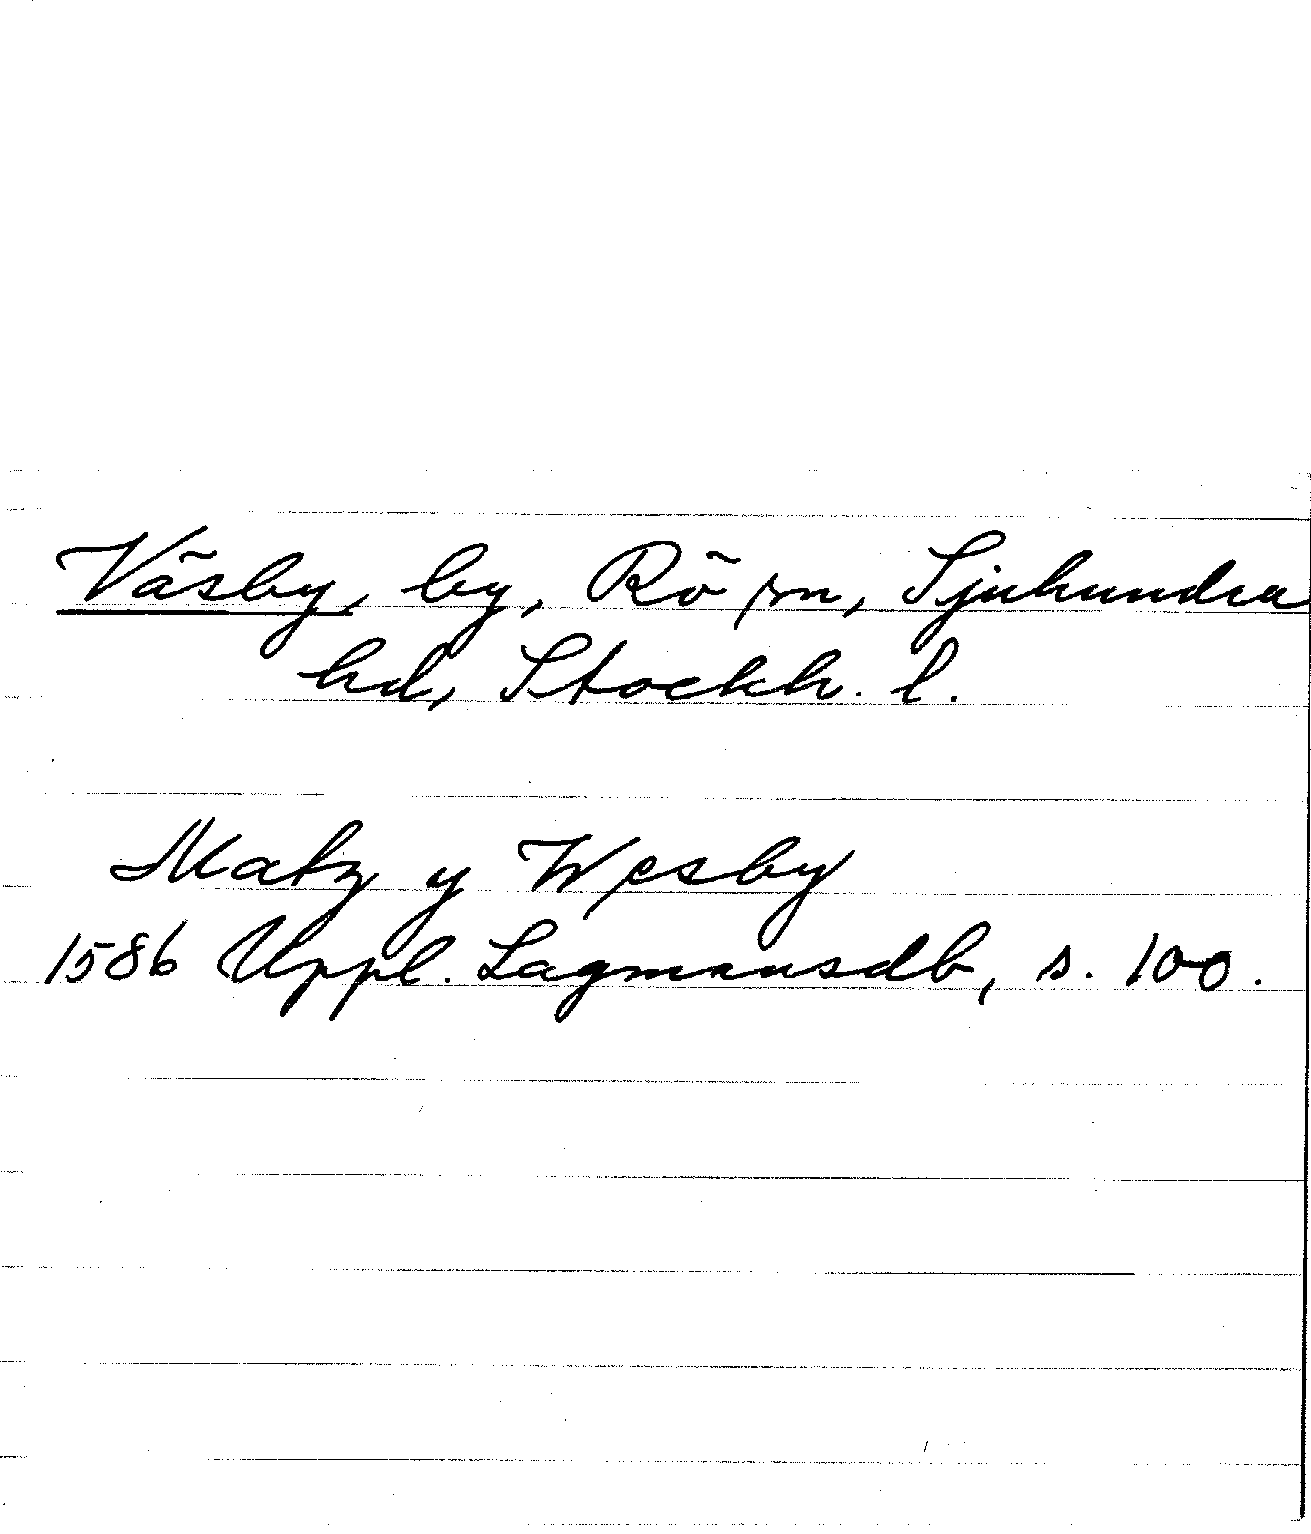 Väsby, by, Rö sn, Sjuhundra
hd, Stockh. l.
Matz y Wesby
1586 Uppl. Lagmansdb, s. 100.